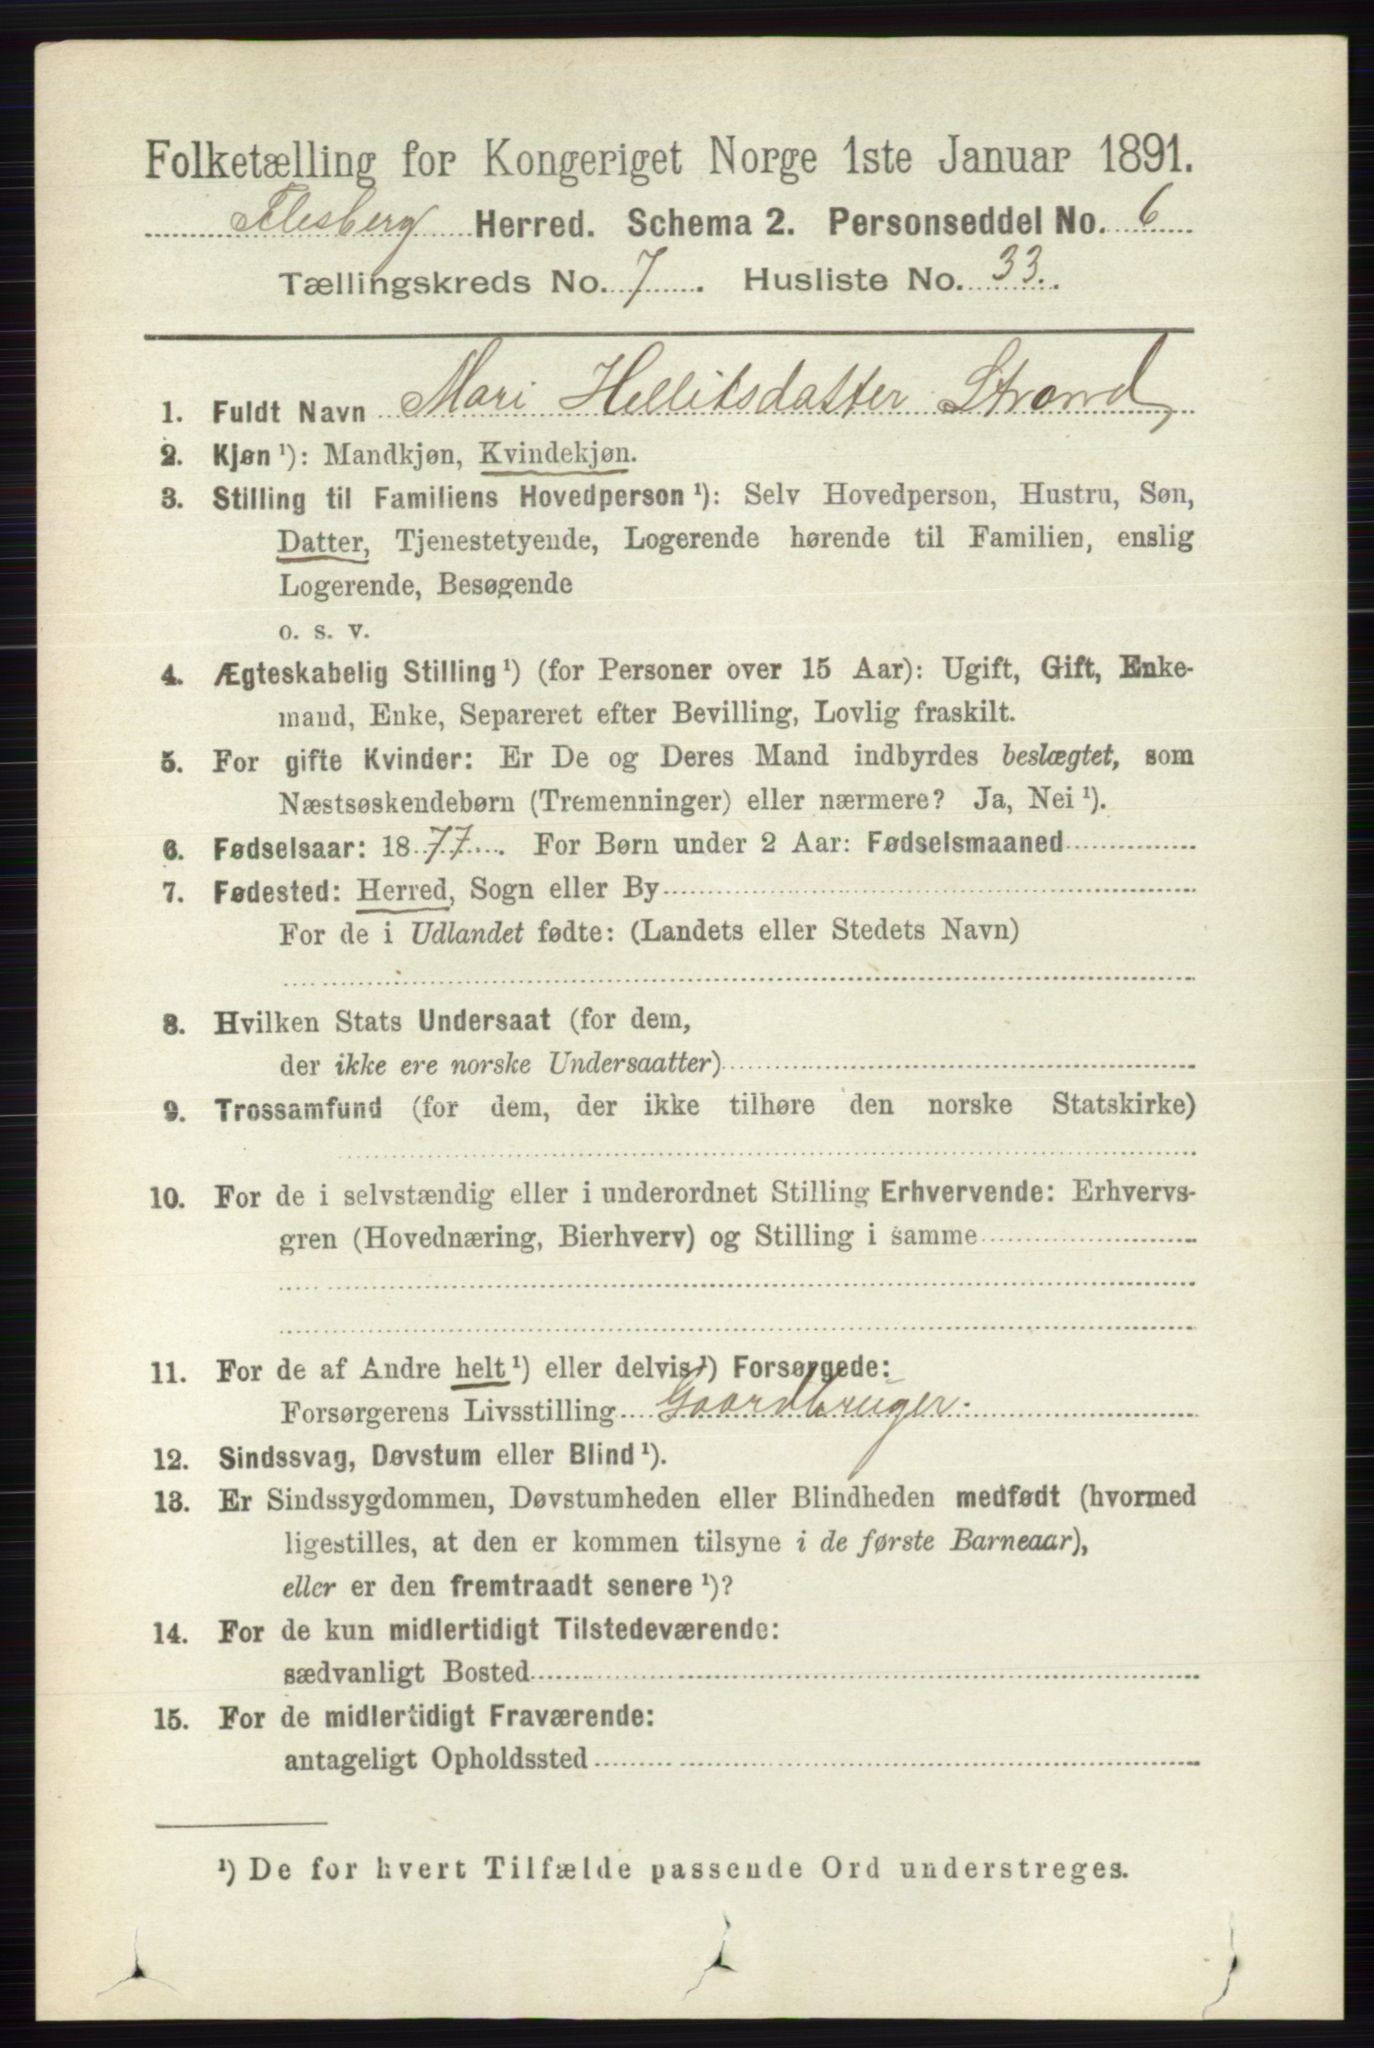 Folketælling for Kongeriget Norge 1ste Januar 1891.
Flesberg Herred. Schema 2. Personseddel No. 6
Tællingskreds No. 7. Husliste No. 33.
1. Fuldt Navn Mari Hellitsdatter Strand,
2. Kjøn ¹): Mandkjøn, Kvindekjøn.
3. Stilling til Familiens Hovedperson ¹): Selv Hovedperson, Hustru, Søn,
Datter, Tjenestetyende, Logerende hørende til Familien, enslig
Logerende, Besøgende
o. s. v.
4. Ægteskabelig Stilling ¹) (for Personer over 15 Aar): Ugift, Gift, Enke-
mand, Enke, Separeret efter Bevilling, Lovlig fraskilt.
5. For gifte Kvinder: Er De og Deres Mand indbyrdes beslægtet, som
Næstsøskendebørn (Tremenninger) eller nærmere? Ja, Nei ¹).
6. Fødselsaar: 1877. For Børn under 2 Aar: Fødselsmaaned
7. Fødested: Herred, Sogn eller By
For de i Udlandet fødte: (Landets eller Stedets Navn)
8. Hvilken Stats Undersaat (for dem,
der ikke ere norske Undersaatter)
9. Trossamfund (for dem, der ikke tilhøre den norske Statskirke)
10. For de i selvstændig eller i underordnet Stilling Erhvervende: Erhvervs-
gren (Hovednæring, Bierhverv) og Stilling i samme
11. For de af Andre helt ¹) eller delvis ¹) Forsørgede:
Forsørgerens Livsstilling Gaardbruger.
12. Sindssvag, Døvstum eller Blind ¹).
13. Er Sindssygdommen, Døvstumheden eller Blindheden medfødt (hvormed
ligestilles, at den er kommen tilsyne i de første Barneaar),
eller er den fremtraadt senere ¹)?
14. For de kun midlertidigt Tilstedeværende:
sædvanligt Bosted
15. For de midlertidigt Fraværende:
antageligt Opholdssted
¹) De for hvert Tilfælde passende Ord understreges.